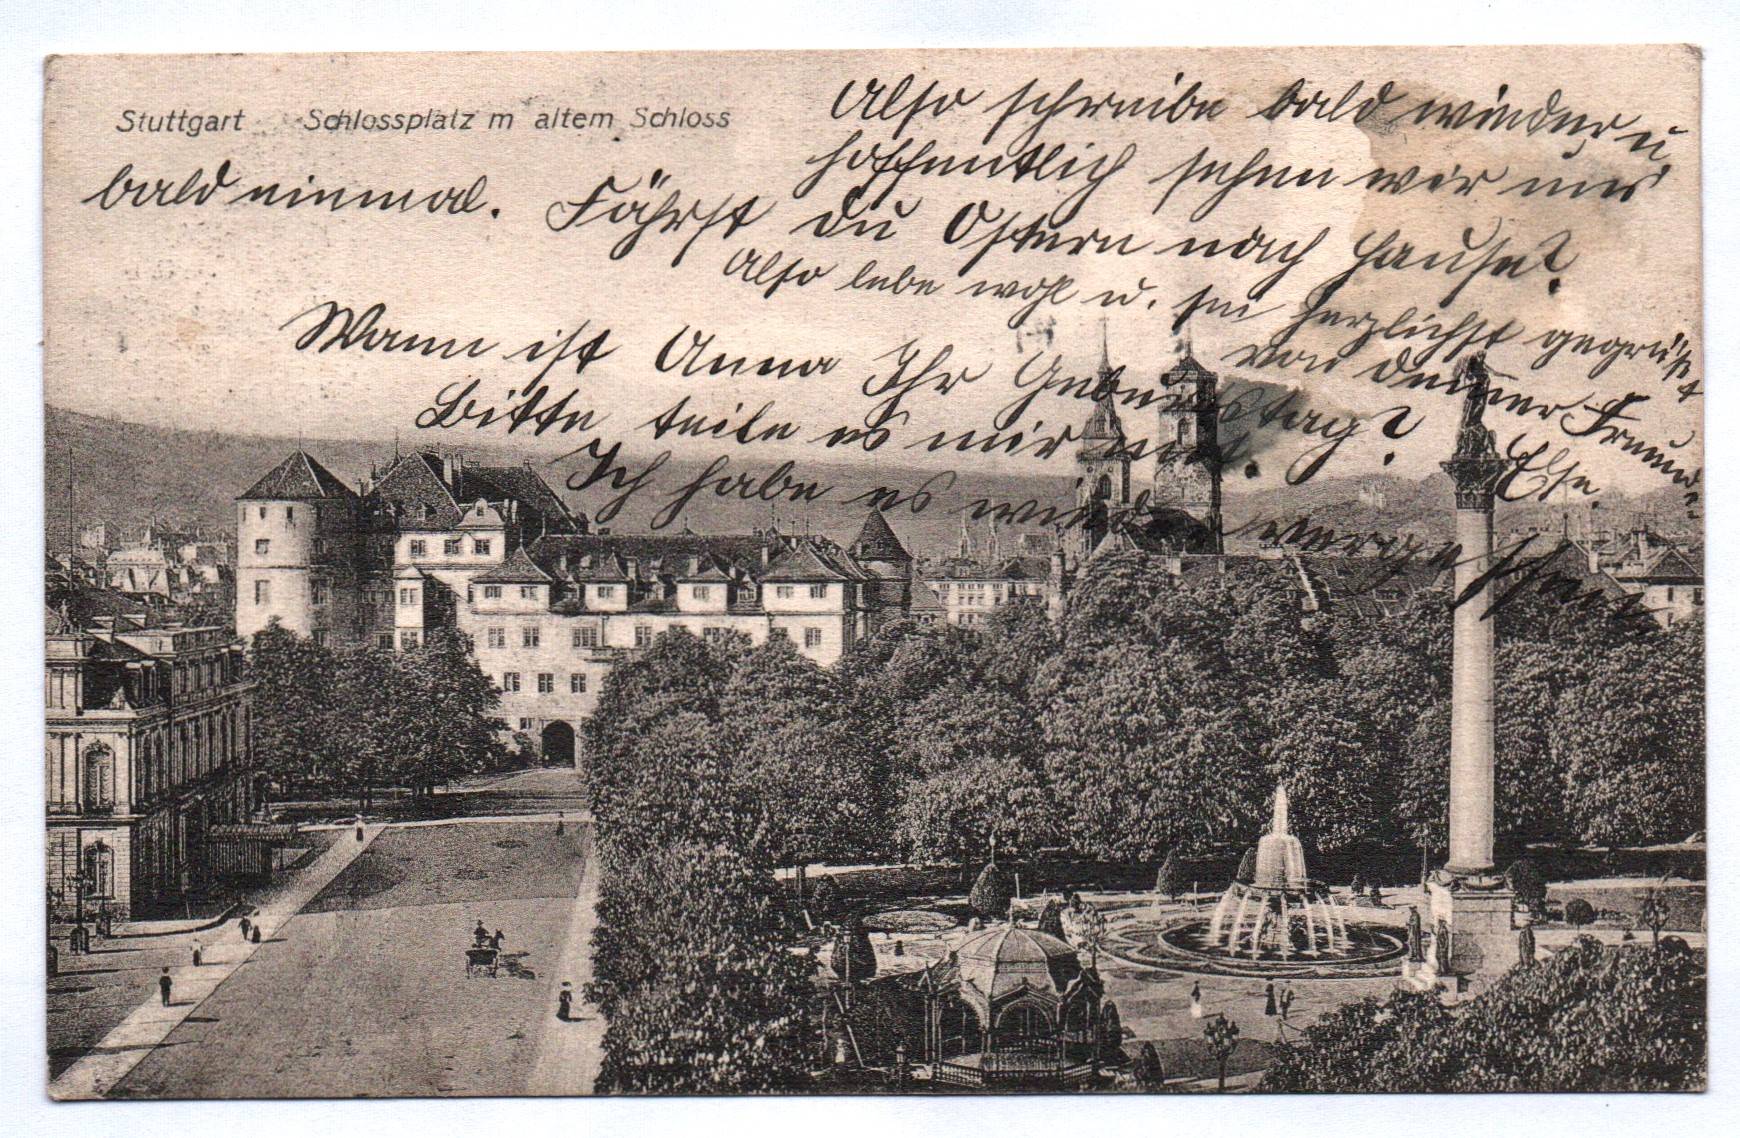 Stuttgart Schlossplatz m altem Schloss
Also schreibe bald wieder u.
hoffentlich sehen wir uns
bald einmal. Fährst du Ostern nach Hause?
Also lebe wohl u. sei herzlichst gegrüßt
von deiner Freundin
Else.
Wann ist Anna Ihr Geburtstag?
Bitte teile es mir mit.
Ich habe es wieder vergessen